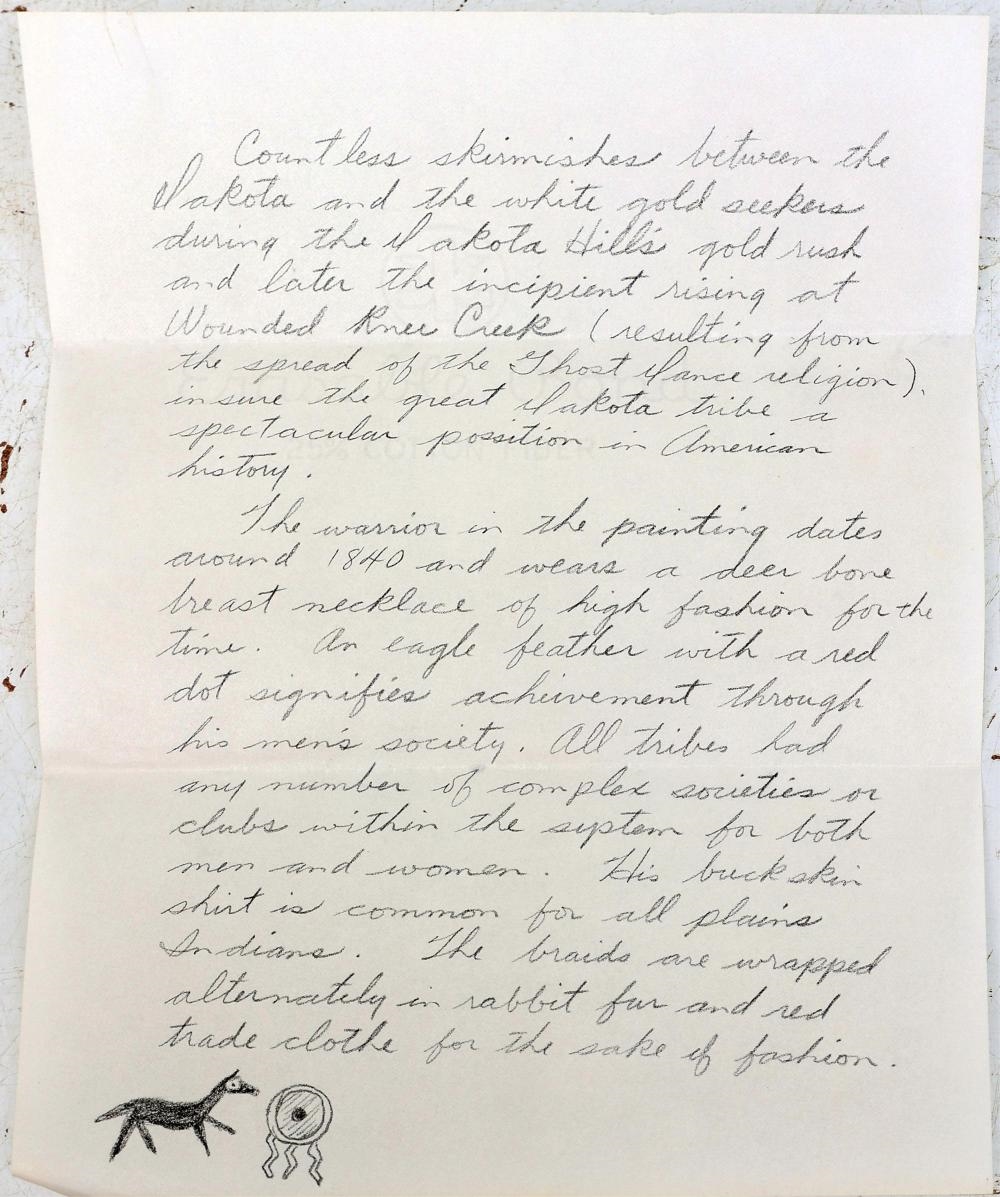 Countless skirmishes between the
Dakota and the white gold seekers
during the Dakota Hills gold rush
and later the incipient rising at
Wounded Knee Creek (resulting from
the spread of the Ghost Dance religion),
insure the great Dakota tribe a
spectacular possition in American
history.
The warrior in the painting dates
around 1840 and wears a deer bone
breast necklace of high fashion for the
time. An eagle feather with a red
dot signifies acheivement through
his men's society. All tribes had
any number of complex societies or
clubs within the system for both
men and women. His buckskin
shirt is common for all plains
Indians. The braids are wrapped
alternately in rabbit fur and red
trade clothe for the sake of fashion.